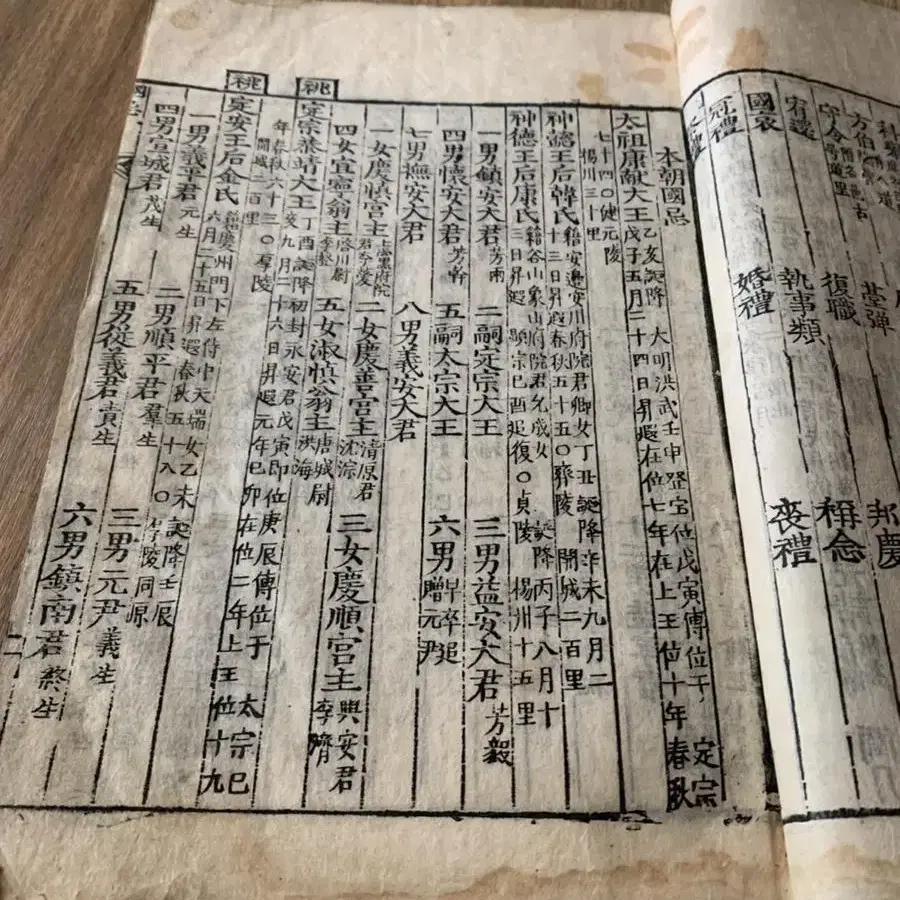 方伯 臺彈 邦慶
守令 復職 稱念
宥還 執事類 喪禮
國哀 婚禮
冠禮
本朝國忌
太祖康獻大王 乙亥誕降 大明洪武壬申登宝位戊寅傳位于 定宗
戊子五月二十四日昇遐在位七年在上王位十年春秋
七十四○健元陵
楊州三十里
神懿王后韓氏 籍安邊安川府院君卿女丁丑誕降辛未九月二
十三日昇遐春秋五十五○齊陵 開城二百里
神德王后康氏 籍谷山象山府院君允成女 誕降丙子八月十
三日昇遐 顯宗己酉追復○貞陵 楊州十五里
一男鎮安大君芳雨 二嗣定宗大王 三男益安大君芳毅
四男懷安大君芳幹 五嗣太宗大王 六男早卒追贈元尹
七男撫安大君 八男義安大君
一女慶慎宮主 二女慶善宮主清原君沈淙 三女慶順宮主興安君李濟
四女宜寧翁主啓川尉李䔲 五女淑慎翁主唐城尉洪海
祧
定宗恭靖大王 丁酉誕降初封永安君戊寅即位庚辰傳位于 太宗己
亥九月二十六日昇遐元年己卯在位二年上王位十九
年春秋六十三○厚陵
開城二百里
祧
定安王后金氏 籍慶州門下左侍中天瑞女乙未誕降壬辰
六月二十五日昇遐春秋五十八○ 厚陵同原
一男義平君元生 二男順平君羣生 三男元尹義生
四男宣城君茂生 五男從義君貴生 六男鎮南君終生